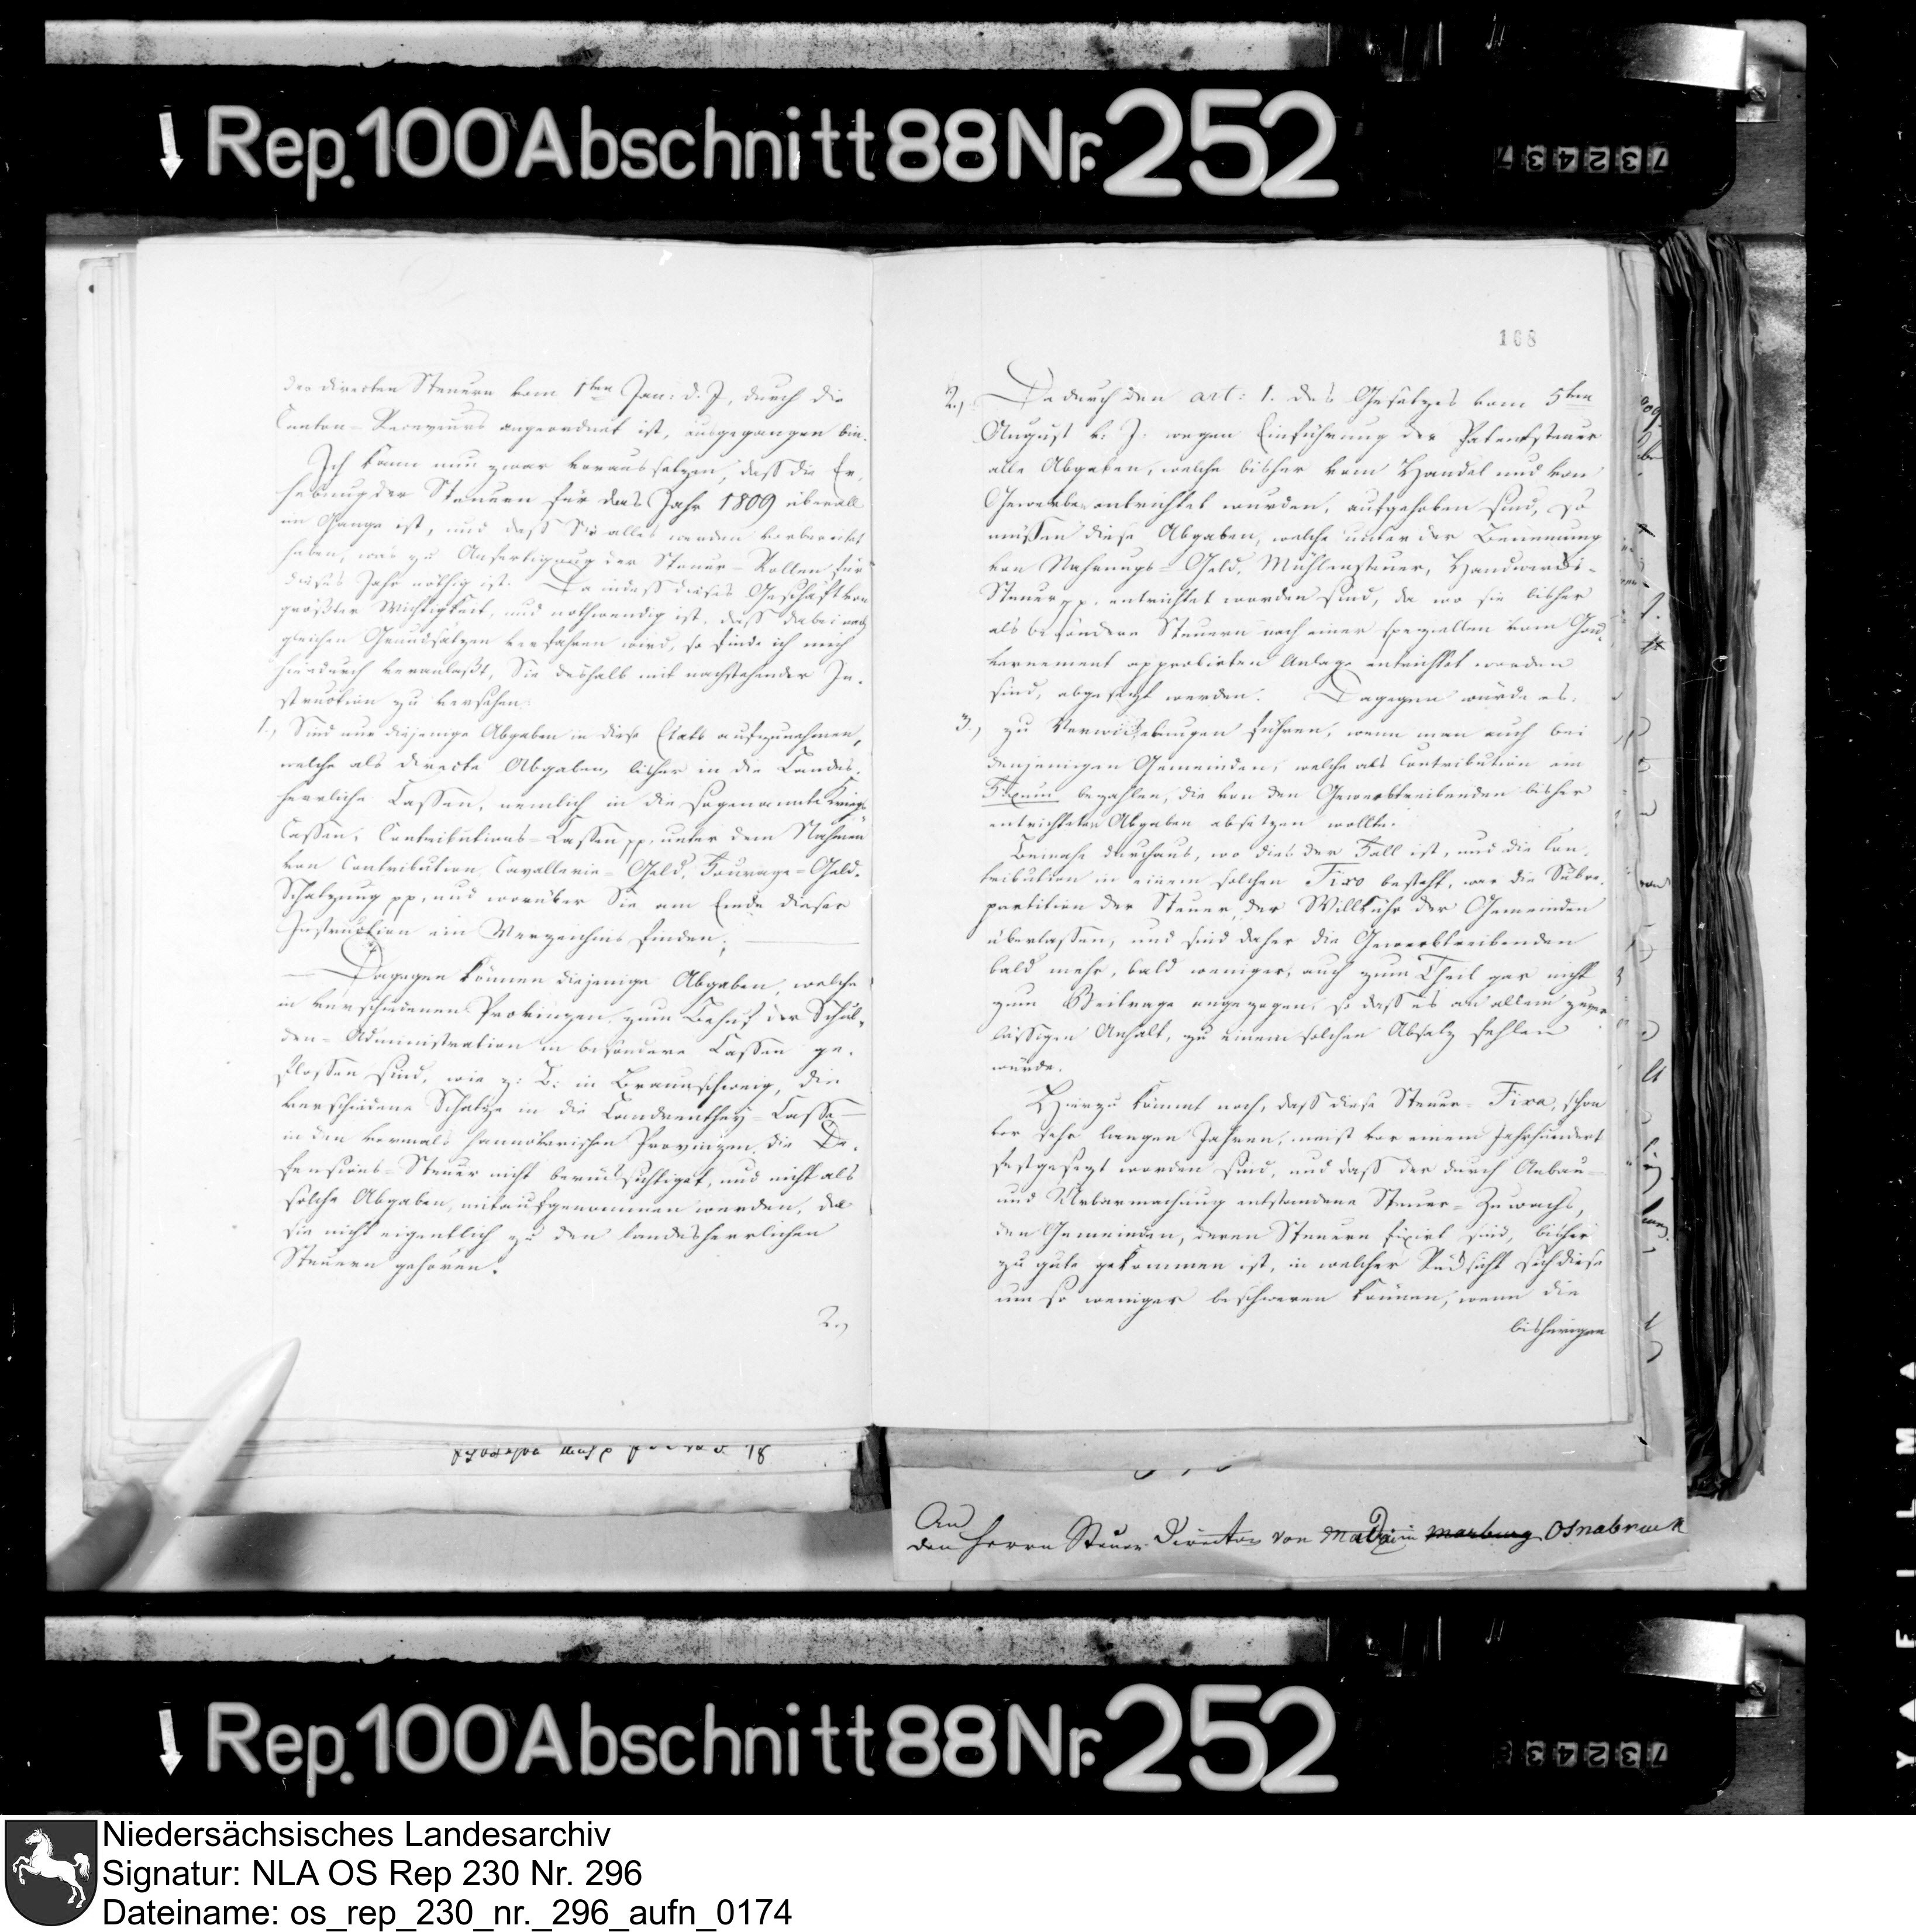 Rep. 100 Abschnitt 88 Nr. 252
732437
der directen Steuern vom 1ten Jan: d. J. durch die
Canton-Receveurs angeordnet ist, ausgegangen bin.
Ich kann nun zwar voraussetzen, daß die Er-
hebung der Steuern für das Jahr 1809 überall
im Gange ist, und daß Sie alles werden vorbereitet
haben, was zu Anfertigung der Steuer-Rollen für
dieses Jahr nöthig ist. Da indeß dieses Geschäft von
größter Wichtigkeit, und nothwendig ist, daß dabei nach
gleichen Grundsätzen verfahren wird, so finde ich mich
hiedurch veranlaßt, Sie deshalb mit nachstehender In-
struction zu versehen.
1., Sind nur diejenige Abgaben in diese Etats aufzunehmen,
welche als directe Abgaben bisher in die Landes-
herrliche Cassen, nemlich in die sogenannte Kriegs-
Cassen, Contributions-Cassen pp. unter dem Nahmen
von Contribution, Cavallerie-Geld, Fourage-Geld,
Schatzung pp, und worüber Sie am Ende dieser
Instruction ein Verzeichnis finden;
Dagegen können diejenige Abgaben, welche
in verschiedenen Provinzen zum Behuf der Schul-
den-Administration in besondere Cassen ge-
flossen sind, wie z: B: in Braunschweig, die
verschiedene Schatze in die Landrenthey-Casse
in den vormals hannöverischen Provinzen die De-
fensions-Steuer nicht berücksichtiget, und nicht als
solche Abgaben mit aufgenommen werden, da
sie nicht eigentlich zu den landesherrlichen
Steuern gehören.
2.,
168
2., Da durch den art: 1. des Gesetzes vom 5ten
August v. J. wegen Einführung der Patentsteuer
alle Abgaben, welche bisher vom Handel und von
Gewerbe entrichtet wurden, aufgehoben sind, so
müssen diese Abgaben, welche unter der Benennung
von Nahrungs-Geld, Mühlensteuer, Handwerks-
Steuer pp. entrichtet worden sind, da wo sie bisher
als besondere Steuern nach einer speziellen vom Gou-
vernement approbirten Anlage entrichtet worden
sind, abgesetzt werden. Dagegen würde es,
3., zu Verwickelungen führen, wenn man auch bei
denjenigen Gemeinden, welche als Contribution ein
Fixum bezahlen, die von den Gewerbtreibenden bisher
entrichteten Abgaben absetzen wollte.
Beinahe durchaus, wo dies der Fall ist, und die Con-
tribution in einem solchen Fixo besteht, war die Subre-
partition der Steuer, der Willkühr der Gemeinden
überlassen, und sind daher die Gewerbtreibenden
bald mehr, bald weniger, auch zum Theil gar nicht
zum Beitrage angezogen, so daß es an allem zuver-
lässigen Anhalt, zu einem solchen Absatz fehlen
würde.
Hierzu kömmt noch, daß diese Steuer-Fixa, schon
vor sehr langen Jahren, meist vor einem Jahrhundert
festgesezt worden sind, und daß der durch Anbau
und Urbarmachung entstandene Steuer-Zuwachs,
den Gemeinden, deren Steuern fixirt sind, bisher
zu gute gekommen ist, in welcher Rücksicht sich diese
um so weniger beschweren können, wenn die
bisherigen
An
den Herrn Steuer Director von Marburg Osnabruck
Rep. 100 Abschnitt 88 Nr. 252
Niedersächsisches Landesarchiv
Signatur: NLA OS Rep 230 Nr. 296
Dateiname: os_rep_230_nr._296_aufn_0174